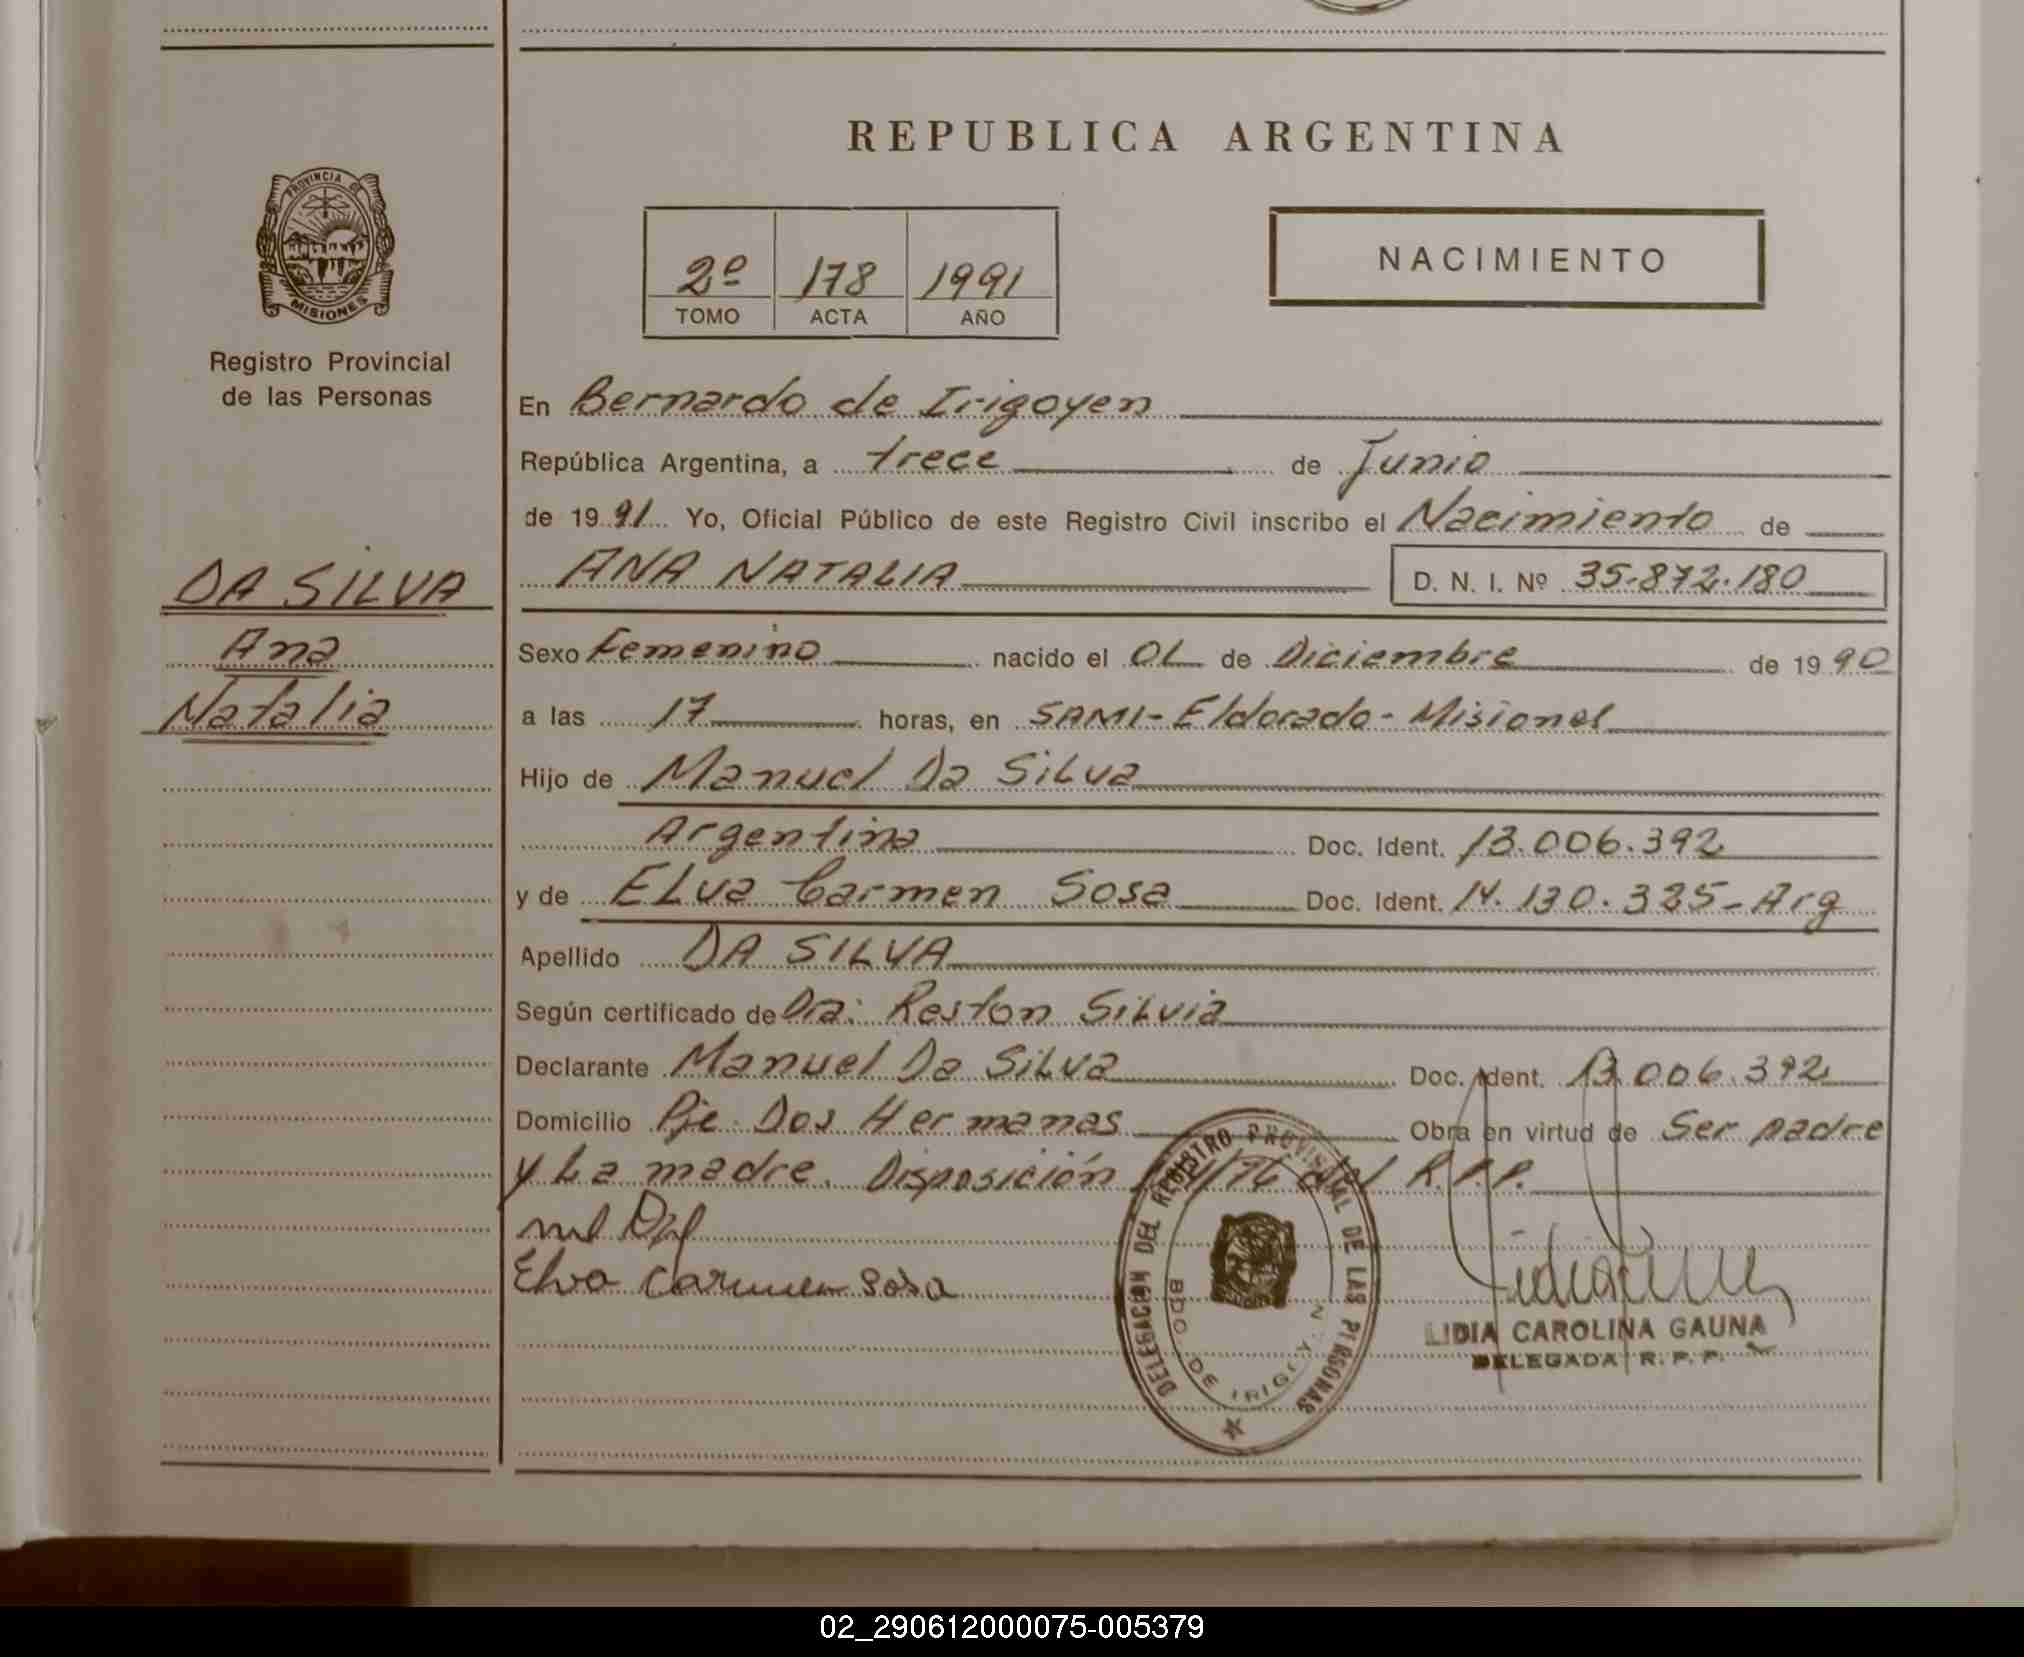 PROVINCIA DE
MISIONES
Registro Provincial
de las Personas
DA SILVA
Ana
Natalia
REPUBLICA ARGENTINA
2º 178 1991
TOMO ACTA AÑO
NACIMIENTO
En Bernardo de Irigoyen
República Argentina, a trece de Junio
de 1991 Yo, Oficial Público de este Registro Civil inscribo el Nacimiento de
ANA NATALIA D. N. I. Nº 35.872.180
Sexo Femenino nacido el 01 de Diciembre de 1990
a las 17 horas, en SAMI - Eldorado - Misiones
Hijo de Manuel Da Silva
Argentina Doc. Ident. 13.006.392
y de Elva Carmen Sosa Doc. Ident. 14.130.325 - Arg
Apellido DA SILVA
Según certificado de Dra: Reston Silvia
Declarante Manuel Da Silva Doc. Ident. 13.006.392
Domicilio Pje. Dos Hermanas Obra en virtud de Ser padre
y La madre. Disposición /76 del R.P.P.
Elva Carmen Sosa
DELEGACION DEL REGISTRO PROVINCIAL DE LAS PERSONAS
BDO. DE IRIGOYEN
LIDIA CAROLINA GAUNA
DELEGADA R. P. P.
02_290612000075-005379